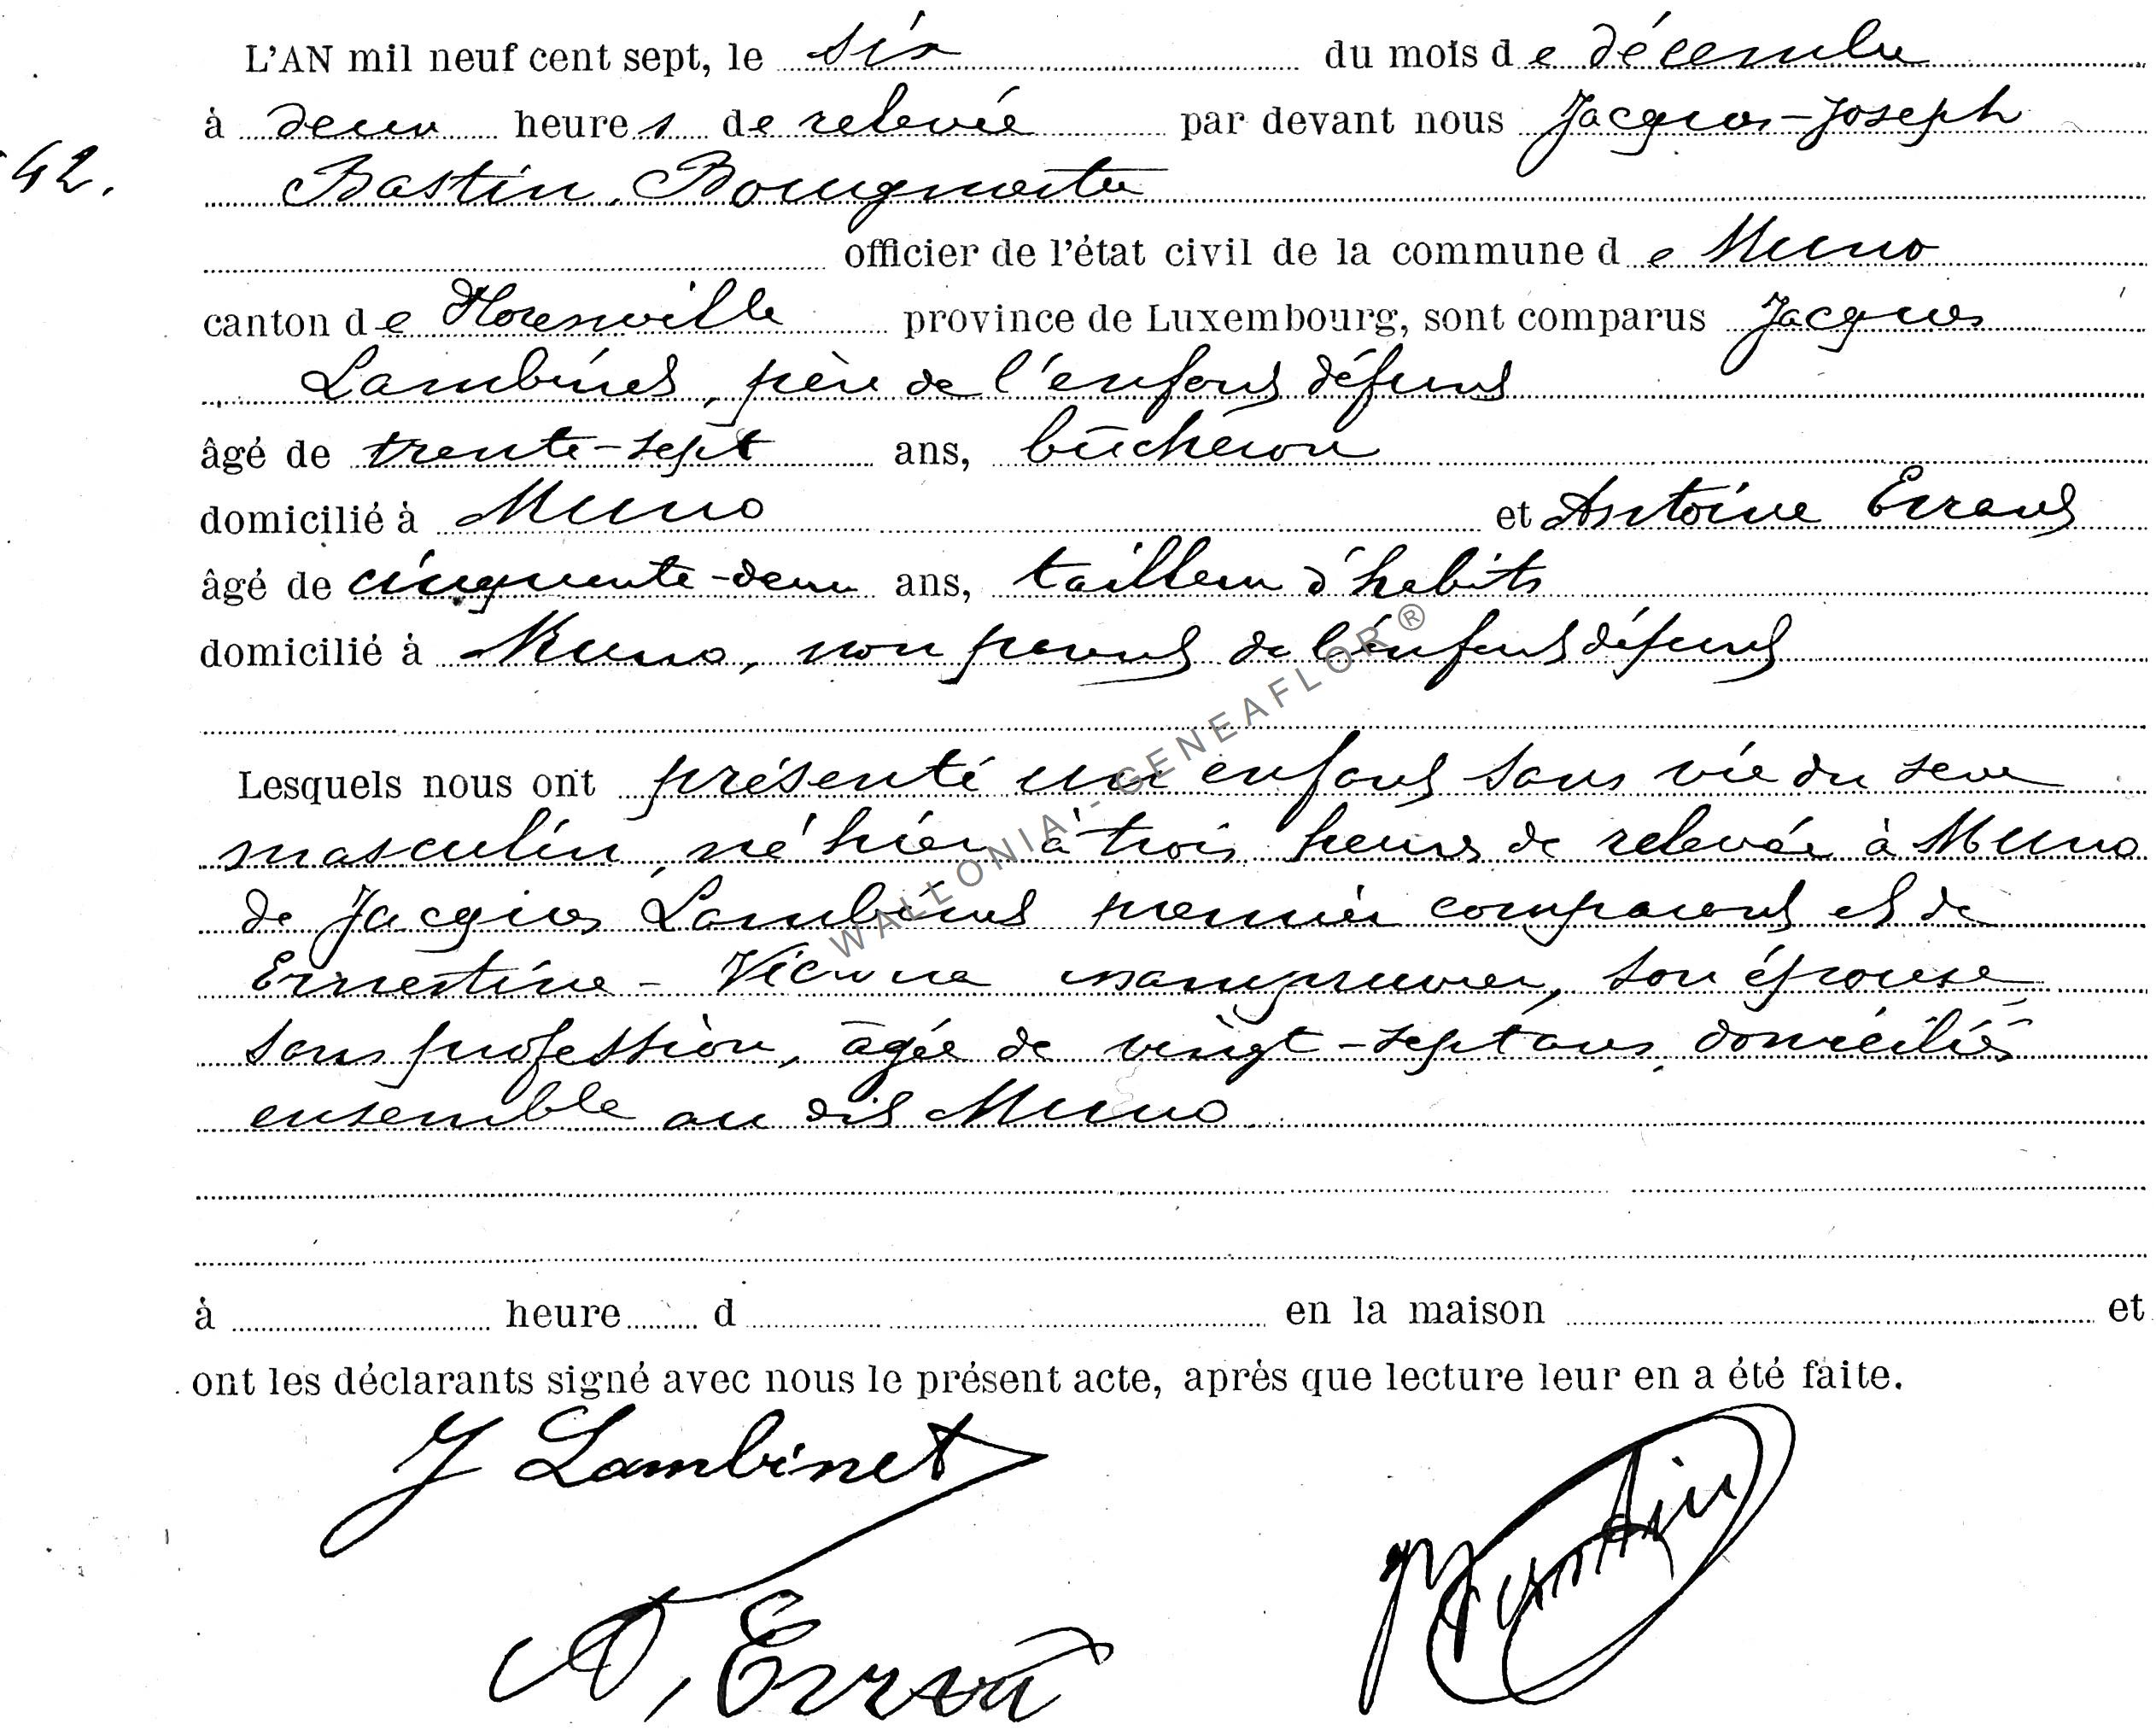 L'AN mil neuf cent sept, le six du mois de décembre
à deux heures de relevée par devant nous Jacques-Joseph
42.
Bastin, Bourgmestre
officier de l'état civil de la commune de Muno
canton de Florenville province de Luxembourg, sont comparus Jacques
Lambinet, père de l'enfant défunt
âgé de trente-sept ans, bûcheron
domicilié à Muno et Antoine Errant
âgé de cinquante-deux ans, tailleur d'habits
domicilié à Muno, non parent de l'enfant défunt
Lesquels nous ont présenté un enfant sans vie du sexe
masculin, né hier à trois heures de relevée à Muno
de Jacques Lambinet premier comparant et de
Ernestine - son épouse
sans profession, âgée de vingt-sept ans, domiciliés
ensemble au dit Muno
à heure d en la maison et
ont les déclarants signé avec nous le présent acte, après que lecture leur en a été faite.
J Lambinet
A, Errant
WALLONIA - GENEAFLOR ®